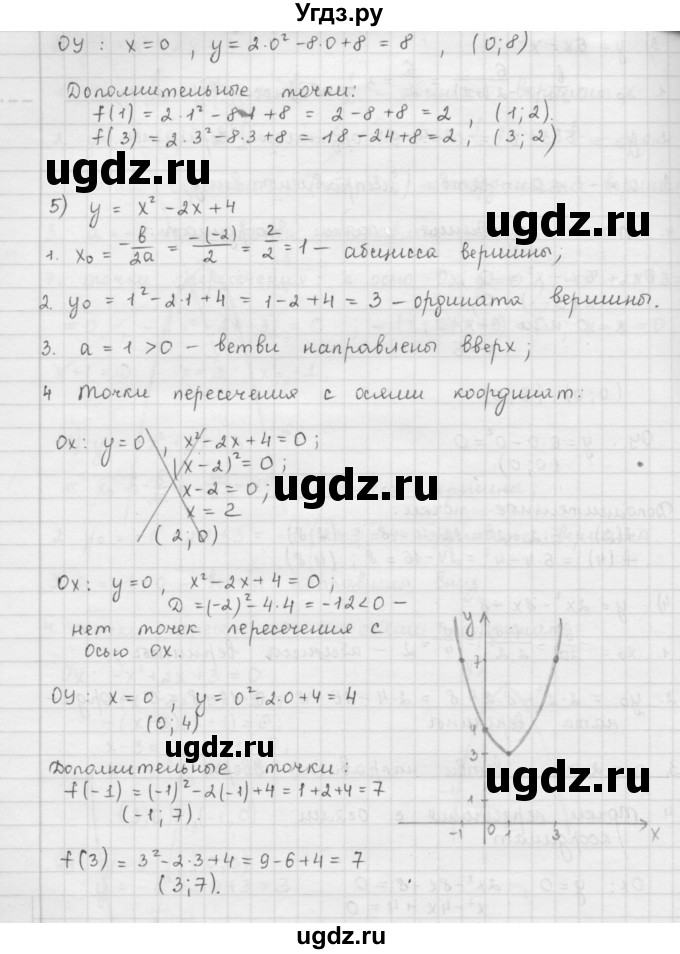 Угдз.ру
ОУ: x=0, y=2·0²-8·0+8=8, (0;8)
Дополнительные точки:
f(1)=2·1²-8·1+8=2-8+8=2, (1;2).
f(3)=2·3²-8·3+8=18-24+8=2, (3;2)
uhdz.ru
uhdz.ru
5) y = x²-2x+4
1. x₀ = -в/2a = -(-2)/2 = 2/2 = 1 - абсцисса вершины;
2. y₀ = 1²-2·1+4 = 1-2+4 = 3 - ордината вершины.
3. a=1>0 - ветви направлены вверх;
4 Точки пересечения с осями координат:
Ox: y=0, x²-2x+4=0;
(x-2)²=0;
x-2=0;
x=2
(2;0)
uhdz.ru
uhdz.ru
Ox: y=0, x²-2x+4=0;
D=(-2)²-4·4=-12<0 -
нет точек пересечения с
осью Ox.
ОУ: x=0, y=0²-2·0+4=4
(0;4)
uhdz.ru
uhdz.ru
Дополнительные точки:
f(-1)=(-1)²-2(-1)+4=1+2+4=7
(-1;7).
f(3)=3²-2·3+4=9-6+4=7
(3;7).
y
7
4
3
1
-1 0 1 3 x
uhdz.ru